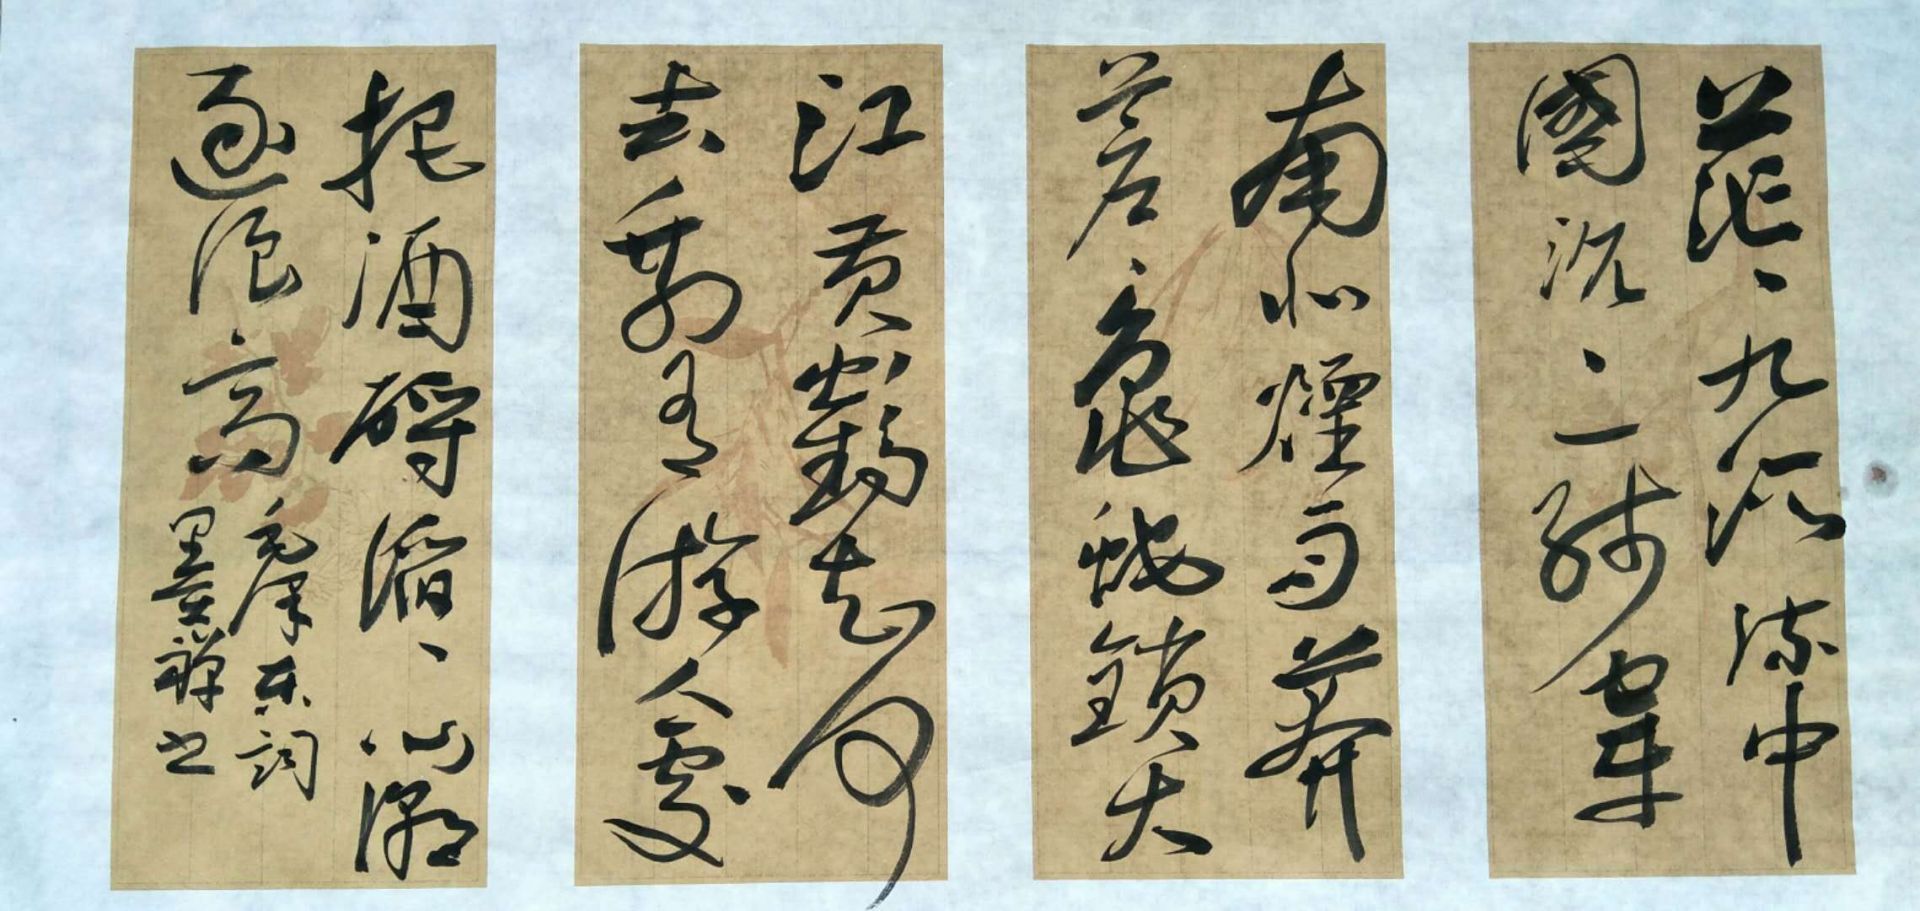 茫々九派流中
國沉々一綫穿
南北煙雨莽
蒼々龜蛇鎖大
江黄鶴知何
去剩有游人處
把酒酹滔々心潮
逐浪高
毛澤东詞
墨禅书